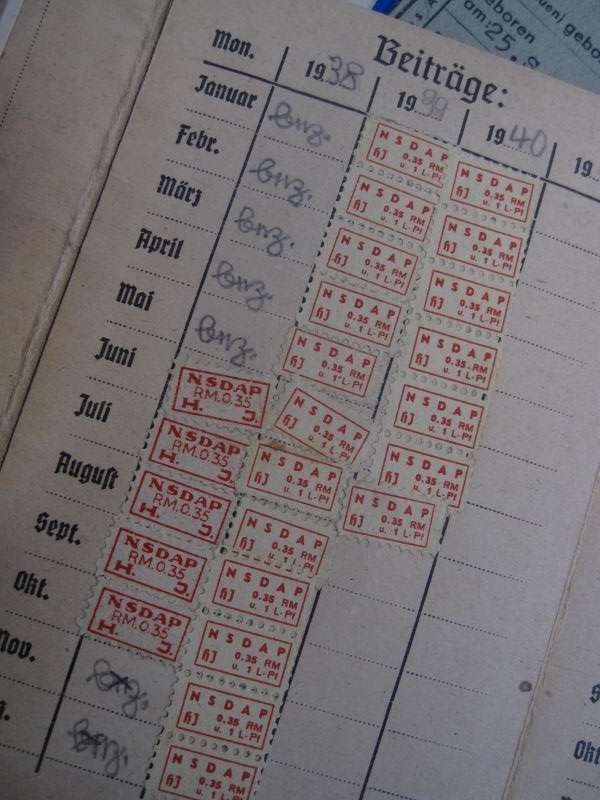 geboren
am: 25. S
Beiträge:
Mon.
1938
1939
1940
19
Januar
Febr.
März
April
Mai
Juni
Juli
August
Sept.
Okt.
Nov.
NSDAP
RM.0.35
H. J.
NSDAP
RM.0.35
H. J.
NSDAP
RM.0.35
H. J.
NSDAP
RM.0.35
H. J.
NSDAP
RM.0.35
H. J.
NSDAP
HJ 0.35 RM
u. 1 L.Pf
NSDAP
HJ 0.35 RM
u. 1 L.Pf
NSDAP
HJ 0.35 RM
u. 1 L.Pf
NSDAP
HJ 0.35 RM
u. 1 L.Pf
NSDAP
HJ 0.35 RM
u. 1 L.Pf
NSDAP
HJ 0.35 RM
u. 1 L.Pf
NSDAP
HJ 0.35 RM
u. 1 L.Pf
NSDAP
HJ 0.35 RM
u. 1 L.Pf
NSDAP
HJ 0.35 RM
u. 1 L.Pf
NSDAP
HJ 0.35 RM
u. 1 L.Pf
NSDAP
HJ 0.35 RM
u. 1 L.Pf
NSDAP
HJ 0.35 RM
u. 1 L.Pf
NSDAP
HJ 0.35 RM
u. 1 L.Pf
NSDAP
HJ 0.35 RM
u. 1 L.Pf
NSDAP
HJ 0.35 RM
u. 1 L.Pf
NSDAP
HJ 0.35 RM
u. 1 L.Pf
NSDAP
HJ 0.35 RM
u. 1 L.Pf
NSDAP
HJ 0.35 RM
u. 1 L.Pf
NSDAP
HJ 0.35 RM
u. 1 L.Pf
Okt